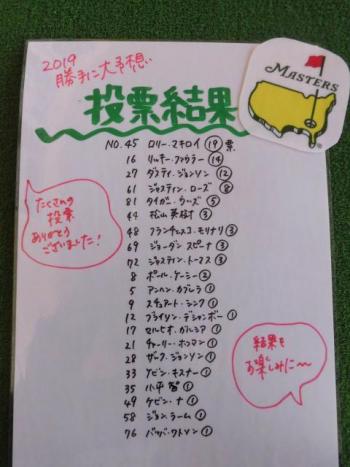 2019
勝手に大予想
投票結果
MASTERS
NO.45 ロリー・マキロイ ⑲票
16 リッキー・ファウラー ⑭
27 ダスティ・ジョンソン ⑫
61 ジャスティン・ローズ ⑧
81 タイガー・ウッズ ⑤
44 松山英樹 ③
48 フランチェスコ・モリナリ ③
69 ジョーダン スピース ③
72 ジャスティン・トーマス ③
8 ポール・ケーシー ②
5 アンヘル・カブレラ ①
9 スチュアート・シンク ①
12 ブライソン・デシャンボー ①
17 セルヒオ・ガルシア ①
21 チャーリー・ホフマン ①
28 ザック・ジョンソン ①
33 ケビン・キスナー ①
35 小平 智 ①
49 ケビン・ナ ①
58 ジョン・ラーム ①
76 バッバ・ワトソン ①
たくさんの
投票
ありがとう
ございました!
結果を
お楽しみに〜